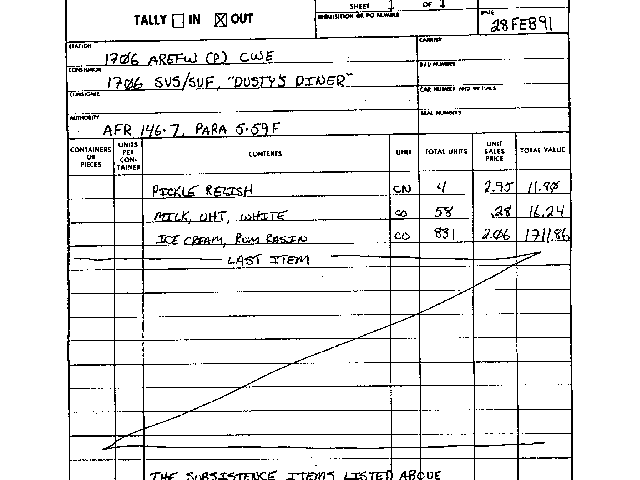 SHEET 1 OF 1
TALLY IN OUT
REQUISITION OR PO NUMBER
DATE
28 FEB 91
STATION
CARRIER
1706 AREFW (P) CWE
CONSIGNOR
B/L NUMBER
1706 SVS/SUF, "DUSTYS DINER"
CONSIGNEE
CAR NUMBER AND INITIALS
AUTHORITY
SEAL NUMBERS
AFR 146-7, PARA 5-59F
CONTAINERS OR PIECES UNITS PER CON- TAINER CONTENTS UNIT TOTAL UNITS UNIT SALES PRICE TOTAL VALUE
PICKLE RELISH CN 4 2.95 11.80
MILK, UHT, WHITE CO 58 .28 16.24
ICE CREAM, RUM RASIN CO 831 2.06 1711.86
LAST ITEM
THE SUBSISTENCE ITEMS LISTED ABOVE